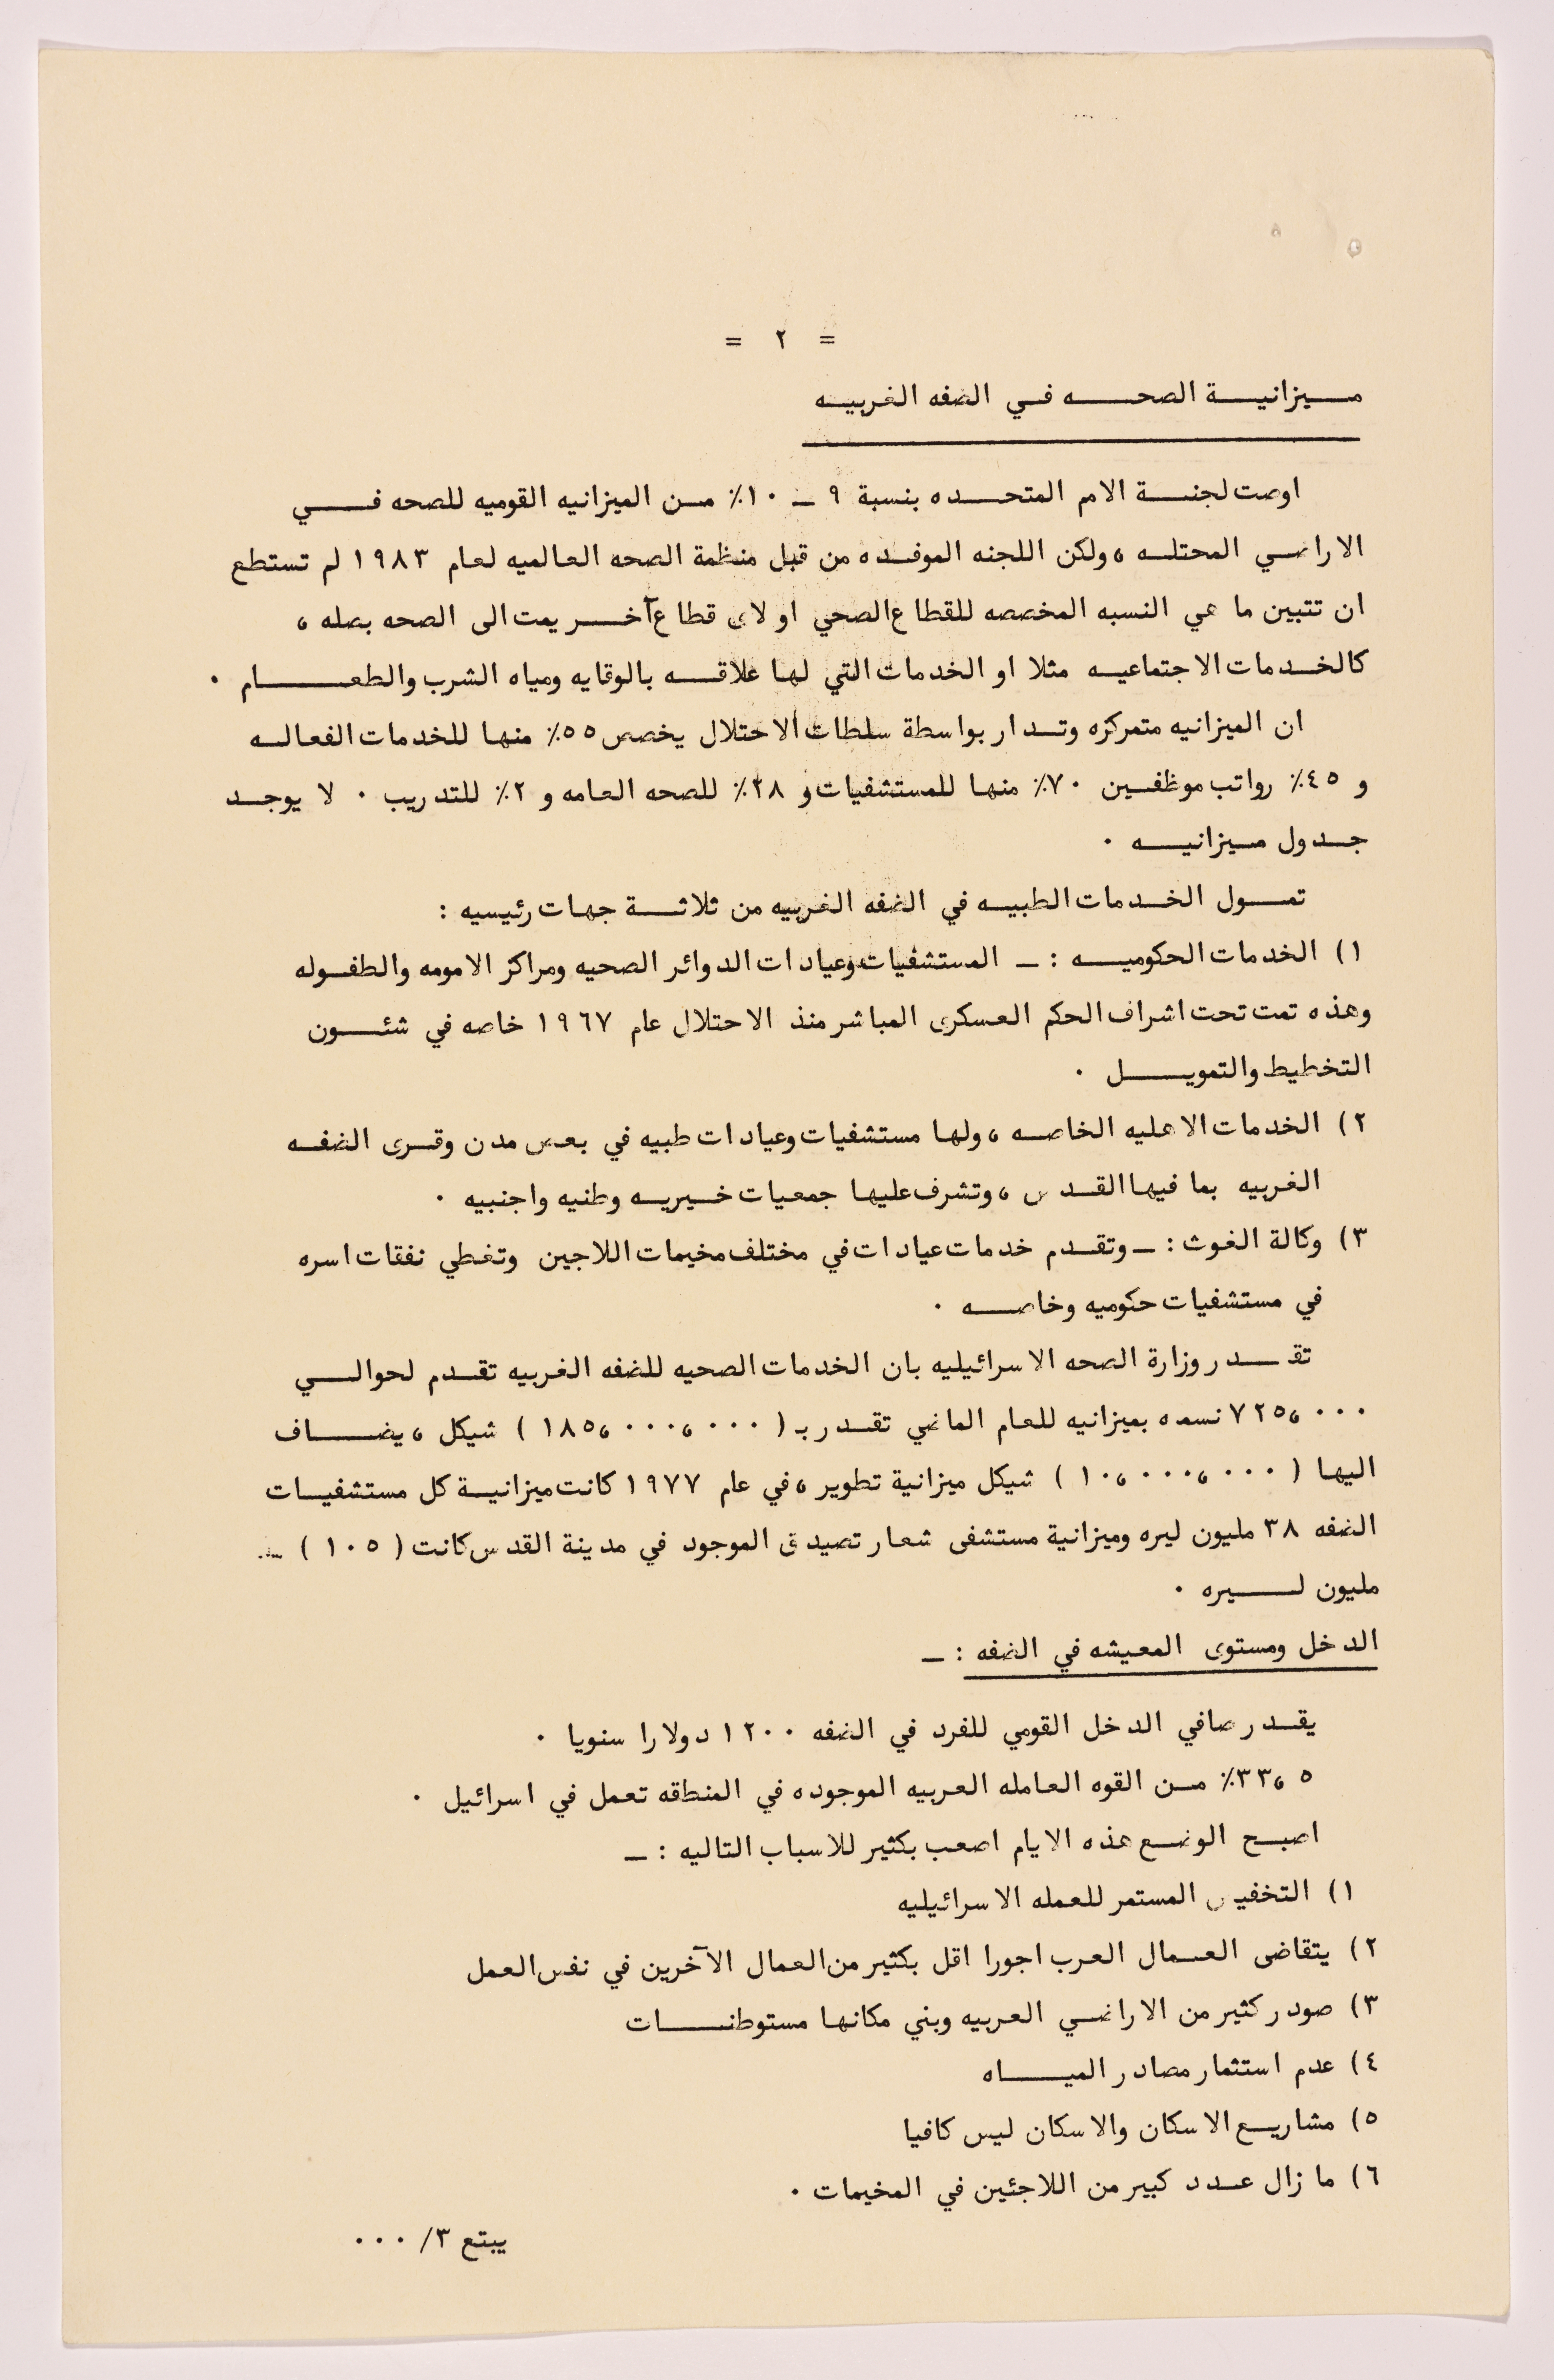 = ٢ =
ميزانية الصحه في الضفه الغربيه
اوصت لجنة الامم المتحده بنسبة ٩ ـ ١٠٪ من الميزانيه القوميه للصحه في
الاراضي المحتله ، ولكن اللجنه الموفده من قبل منظمة الصحه العالميه لعام ١٩٨٣ لم تستطع
ان تتبين ما هي النسبه المخصصه للقطاع الصحي او لاى قطاع آخر يمت الى الصحه بصله ،
كالخدمات الاجتماعيه مثلا او الخدمات التي لها علاقه بالوقايه ومياه الشرب والطعام ٠
ان الميزانيه متمركزه وتدار بواسطة سلطات الاحتلال يخصص ٥٥٪ منها للخدمات الفعاله
و ٤٥٪ رواتب موظفين ٧٠٪ منها للمستشفيات و ٢٨٪ للصحه العامه و ٢٪ للتدريب ٠ لا يوجد
جدول ميزانيه ٠
تمول الخدمات الطبيه في الضفه الغربيه من ثلاثة جهات رئيسيه :
١) الخدمات الحكوميه : ـ المستشفيات وعيادات الدوائر الصحيه ومراكز الامومه والطفوله
وهذه تمت تحت اشراف الحكم العسكرى المباشر منذ الاحتلال عام ١٩٦٧ خاصه في شئون
التخطيط والتمويل ٠
٢) الخدمات الاهليه الخاصه ، ولها مستشفيات وعيادات طبيه في بعض مدن وقرى الضفه
الغربيه بما فيها القدس ، وتشرف عليها جمعيات خيريه وطنيه واجنبيه ٠
٣) وكالة الغوث : ـ وتقدم خدمات عيادات في مختلف مخيمات اللاجين وتغطي نفقات اسره
في مستشفيات حكوميه وخاصه ٠
تقدر وزارة الصحه الاسرائيليه بان الخدمات الصحيه للضفه الغربيه تقدم لحوالي
٧٢٥،٠٠٠ نسمه بميزانيه للعام الماضي تقدر بـ ( ١٨٥،٠٠٠،٠٠٠ ) شيكل ، يضاف
اليها ( ١٠،٠٠٠،٠٠٠ ) شيكل ميزانية تطوير ، في عام ١٩٧٧ كانت ميزانية كل مستشفيات
الضفه ٣٨ مليون ليره وميزانية مستشفى شعار تصيدق الموجود في مدينة القدس كانت ( ١٠٥ )
مليون ليره ٠
الدخل ومستوى المعيشه في الضفه : ـ
يقدر صافي الدخل القومي للفرد في الضفه ١٢٠٠ دولارا سنويا ٠
٣٣،٥٪ من القوه العامله العربيه الموجوده في المنطقه تعمل في اسرائيل ٠
اصبح الوضع هذه الايام اصعب بكثير للاسباب التاليه : ـ
١) التخفيض المستمر للعمله الاسرائيليه
٢) يتقاضى العمال العرب اجورا اقل بكثير من العمال الآخرين في نفس العمل
٣) صودر كثير من الاراضي العربيه وبني مكانها مستوطنات
٤) عدم استثمار مصادر المياه
٥) مشاريع الاسكان والاسكان ليس كافيا
٦) ما زال عدد كبير من اللاجئين في المخيمات ٠
يبتع ٣/ ٠٠٠